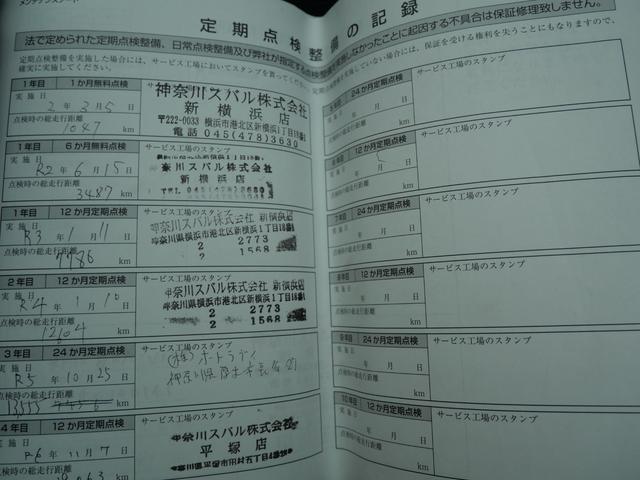 メンテナンスノート
定期点検整備の記録
法で定められた定期点検整備、日常点検整備及び弊社が指定する点検整備を実施しなかったことに起因する不具合は保証修理致しません。
定期点検整備を実施した場合には、サービス工場においてスタンプを貰ってください。定期点検整備を実施していない場合には、保証を受ける権利を失うことにもなりますので、
確実に実施してください。
1年目 1か月無料点検
サービス工場のスタンプ
実施日
2年3月5日
点検時の総走行距離
1047 km
神奈川スバル株式会社
新横浜店
〒222-0033 横浜市港北区新横浜1丁目18番1
電話 045(478)3630
1年目 6か月無料点検
サービス工場のスタンプ
実施日
R2年6月15日
点検時の総走行距離
3487 km
奈川スバル株式会社
新横浜店
1年目 12か月定期点検
サービス工場のスタンプ
実施日
R3年1月11日
点検時の総走行距離
7786 km
神奈川スバル株式会社 新横浜店
神奈川県横浜市港北区新横浜1丁目18番
2 2773
2 1568
2年目 12か月定期点検
サービス工場のスタンプ
実施日
R4年1月10日
点検時の総走行距離
12104 km
神奈川スバル株式会社 新横浜店
神奈川県横浜市港北区新横浜1丁目18番
2 2773
2 1568
3年目 24か月定期点検
サービス工場のスタンプ
実施日
R5年10月25日
点検時の総走行距離
13555 km
(株)オートラディ
神奈川県厚木市
4年目 12か月定期点検
サービス工場のスタンプ
実施日
R6年11月7日
点検時の総走行距離
km
神奈川スバル株式会社
平塚店
神奈川県平塚市田村五丁目
24か月定期点検
サービス工場のスタンプ
実施日
年 月 日
点検時の総走行距離
km
12か月定期点検
サービス工場のスタンプ
実施日
年 月 日
点検時の総走行距離
km
7年目 24か月定期点検
サービス工場のスタンプ
実施日
年 月 日
点検時の総走行距離
km
8年目 12か月定期点検
サービス工場のスタンプ
実施日
年 月 日
点検時の総走行距離
km
9年目 24か月定期点検
サービス工場のスタンプ
実施日
年 月 日
点検時の総走行距離
km
10年目 12か月定期点検
サービス工場のスタンプ
実施日
年 月 日
点検時の総走行距離
km